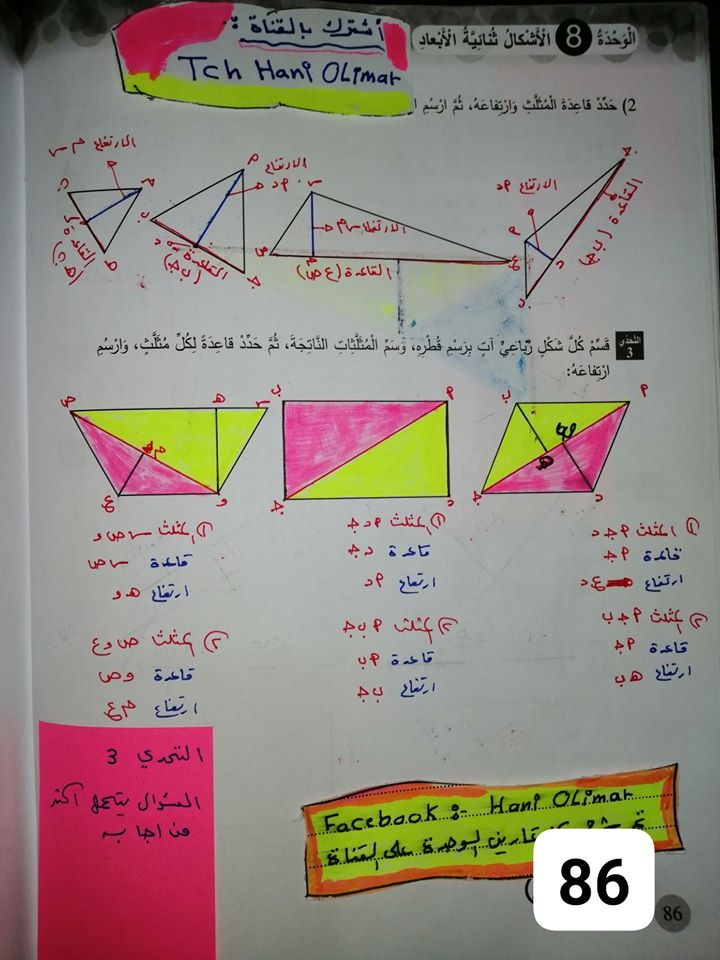 أشترك بالقناة :
Tch Hani OLimar
الْوَحْدَةُ 8 الْأَشْكَالُ ثُنَائِيَّةُ الْأَبْعَادِ
2) حَدِّدْ قاعِدَةَ الْمُثَلَّثِ وَارْتِفاعَهُ، ثُمَّ ارْسُمِ
الارتفاع م س
القاعدة
الارتفاع
م د
القاعدة
(ب ج)
الارتفاع س م
القاعدة (ع ص)
الارتفاع م د
القاعدة (ب ج)
التَّحَدّي 3
قَسِّمْ كُلَّ شَكْلٍ رُباعِيٍّ آتٍ بِرَسْمِ قُطْرِهِ، وَسَمِّ الْمُثَلَّثاتِ النّاتِجَةَ، ثُمَّ حَدِّدْ قاعِدَةً لِكُلِّ مُثَلَّثٍ، وَارْسُمِ
ارْتِفاعَهُ:
1) المثلث م ج د
قاعدة م ج
ارتفاع ع د
2) المثلث م ج ب
قاعدة م ج
ارتفاع هـ ب
1) المثلث م د ج
قاعدة د ج
ارتفاع م د
2) المثلث م ب ج
قاعدة م ب
ارتفاع ب ج
1) المثلث س ص و
قاعدة س ص
ارتفاع هـ و
2) المثلث ص و ع
قاعدة و ص
ارتفاع م ع
التحدي 3
السؤال يتحمل أكثر
من اجابه
Facebook :- Hani OLimar
الوحدة على القناة
86
86